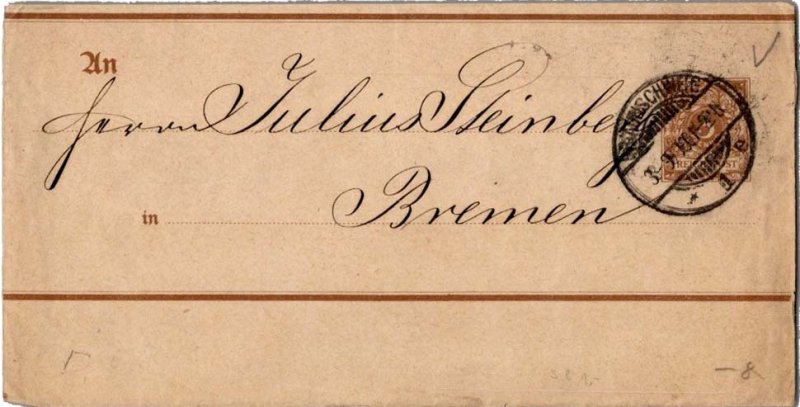 An
Herrn Julius Steinberg
in Bremen
BRAUNSCHWEIG
REICHSPOST
* 1 e
-8